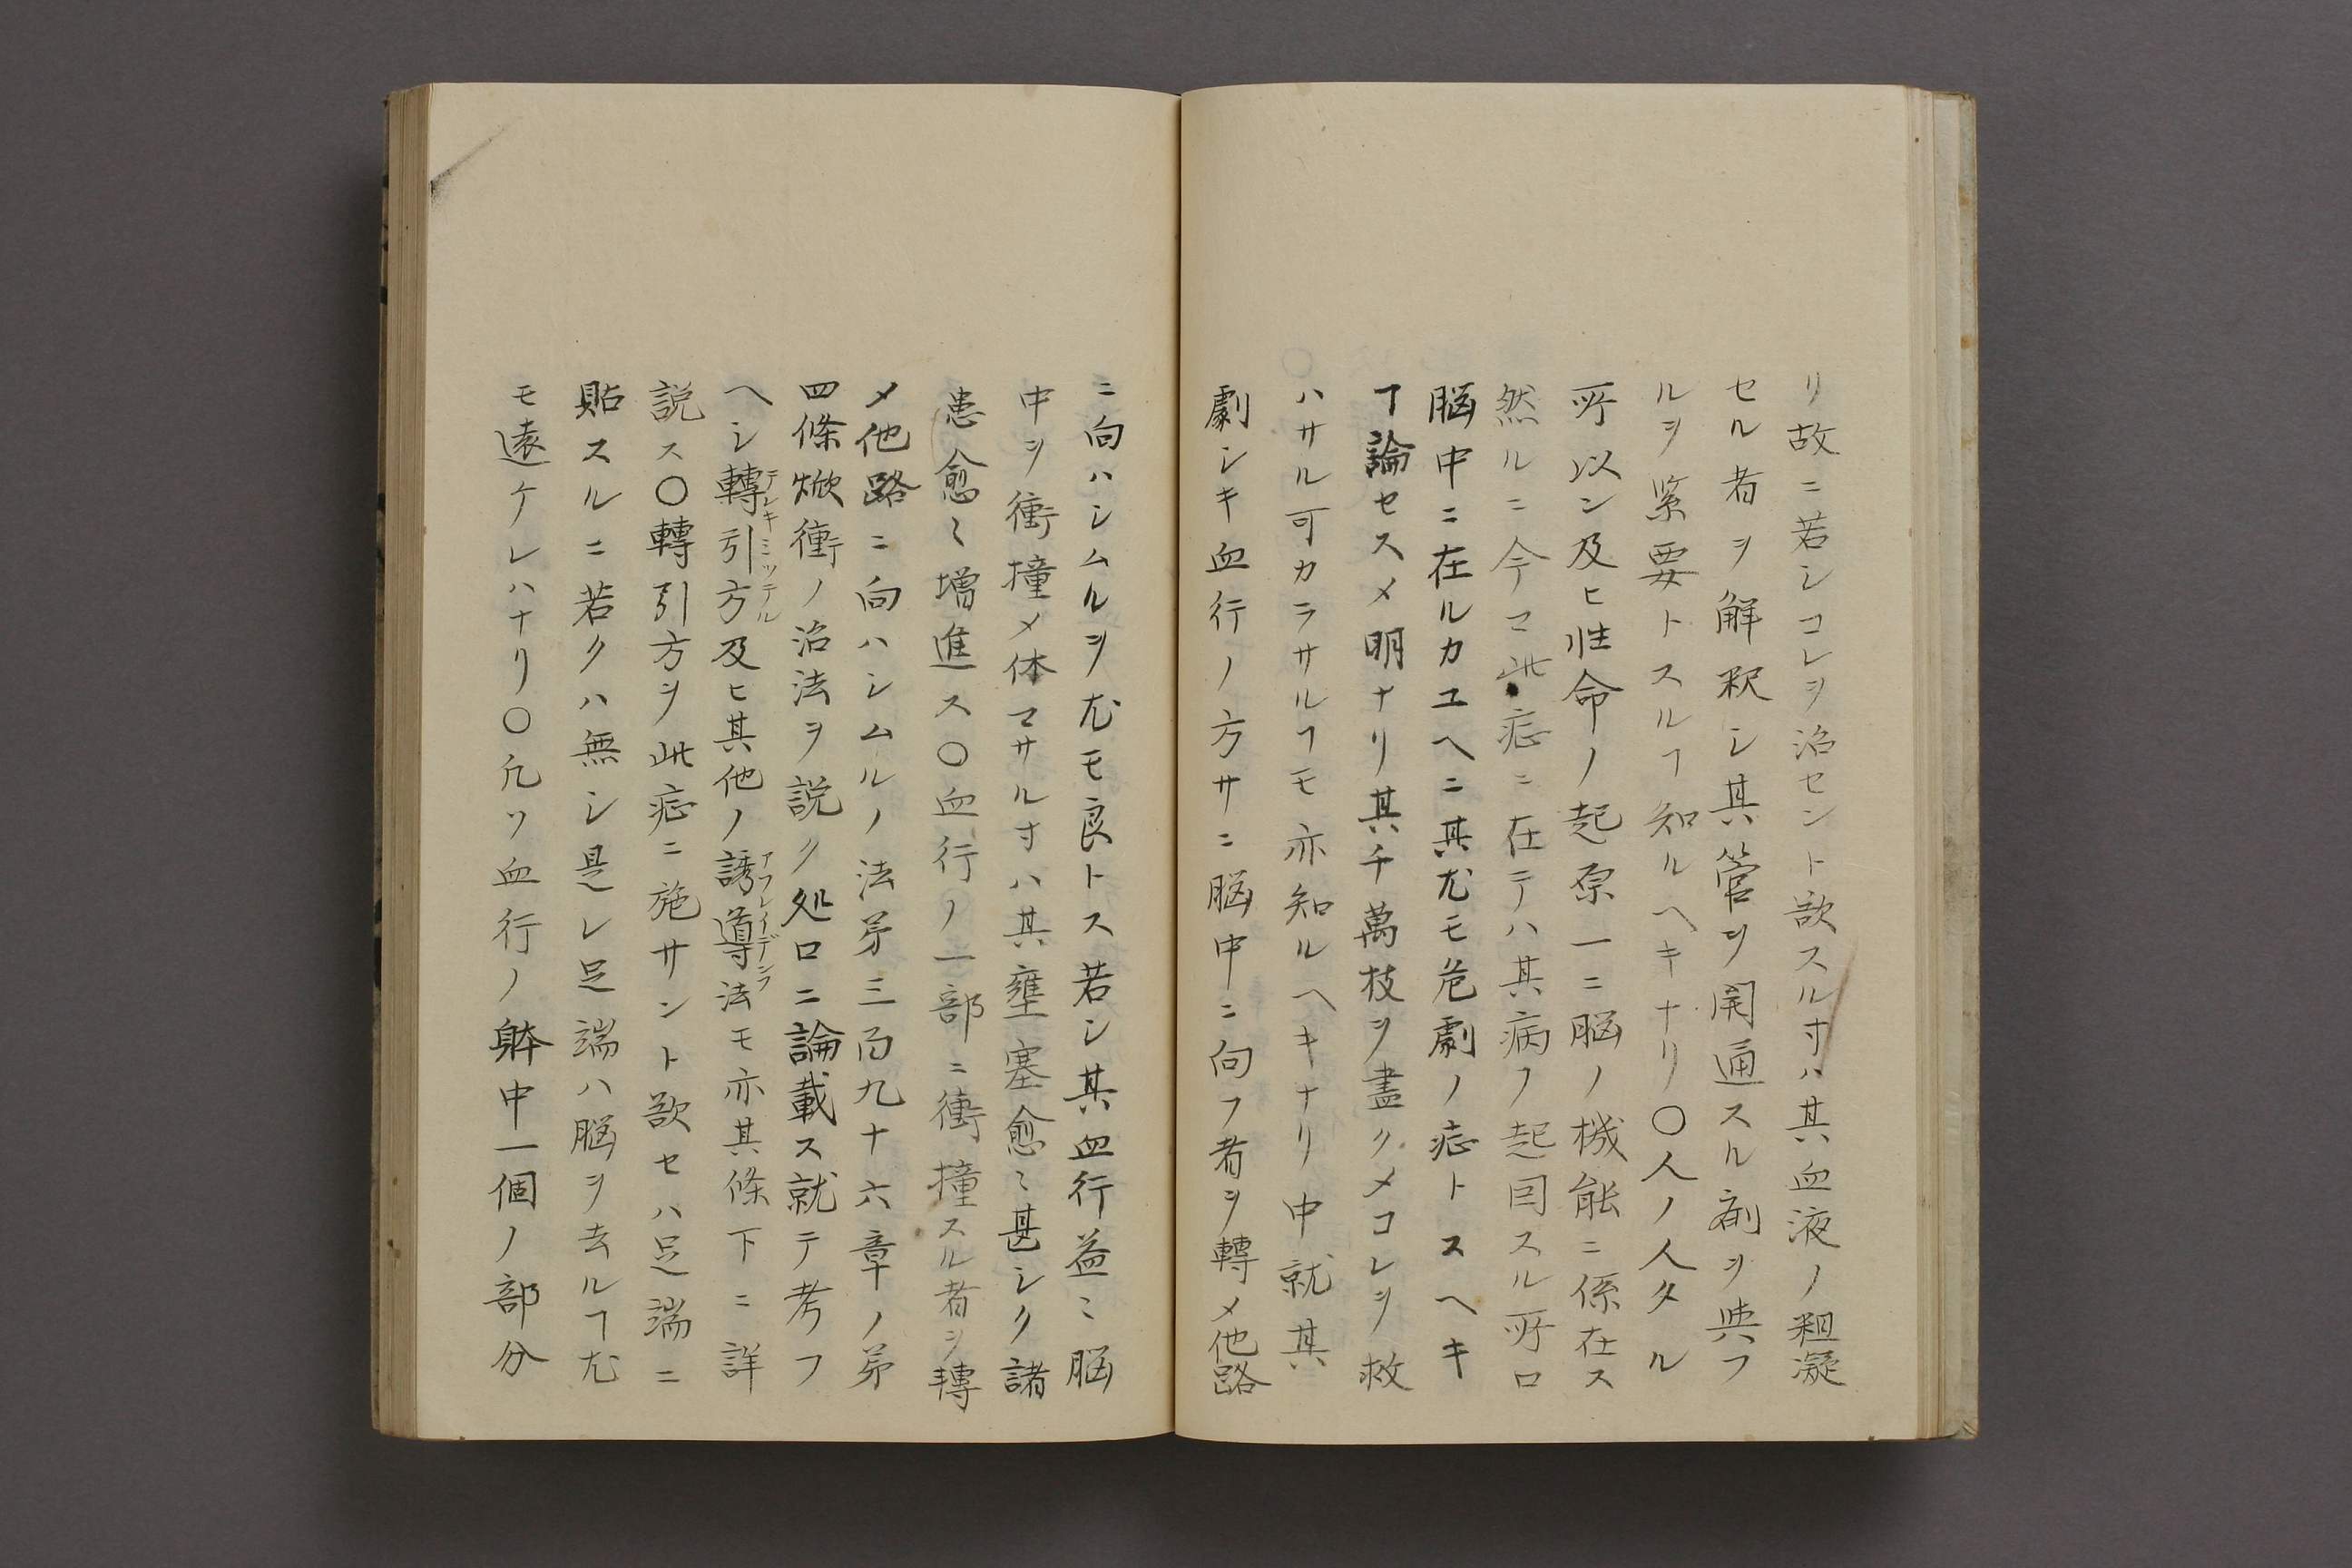 リ故ニ若シコレヲ治セント欲スル寸ハ其血液ノ粗凝
セル者ヲ解釈シ其管ヲ開通スル剤ヲ典フ
ルヲ緊要トスルヿ知ルヘキナリ〇人ノ人タル
所以ン及ヒ性命ノ起原一ニ脳ノ機能ニ係在ス
然ルニ今マ此症ニ在テハ其病ノ起因スル所ロ
脳中ニ在ルカユヘニ其尤モ危劇ノ症トスヘキ
ヿ論セスメ明ナリ其千萬枝ヲ盡クメコレヲ救
ハサル可カラサルヿモ亦知ルヘキナリ中就其
劇シキ血行ノ方サニ脳中ニ向フ者ヲ轉メ他路
ニ向ハシムルヲ尤モ良トス若シ其血行益ミ脳
中ヲ衝撞メ休マサル寸ハ其壅塞愈ミ甚シク諸
患愈ミ増進ス〇血行ノ一部ニ衝撞スル者ヲ轉
メ他路ニ向ハシムルノ法苐三百九十六章ノ苐
四條焮衝ノ治法ヲ説ク処ロニ論載ス就テ考フ
ヘシ轉引方テレキミッテル及ヒ其他ノ誘導法アフレイデンフモ亦其條下ニ詳
説ス〇轉引方ヲ此症ニ施サント欲セハ足端ニ
貼スルニ若クハ無シ是レ足端ハ脳ヲ去ルヿ尤
モ遠ケレハナリ〇凢ソ血行ノ躰中一個ノ部分